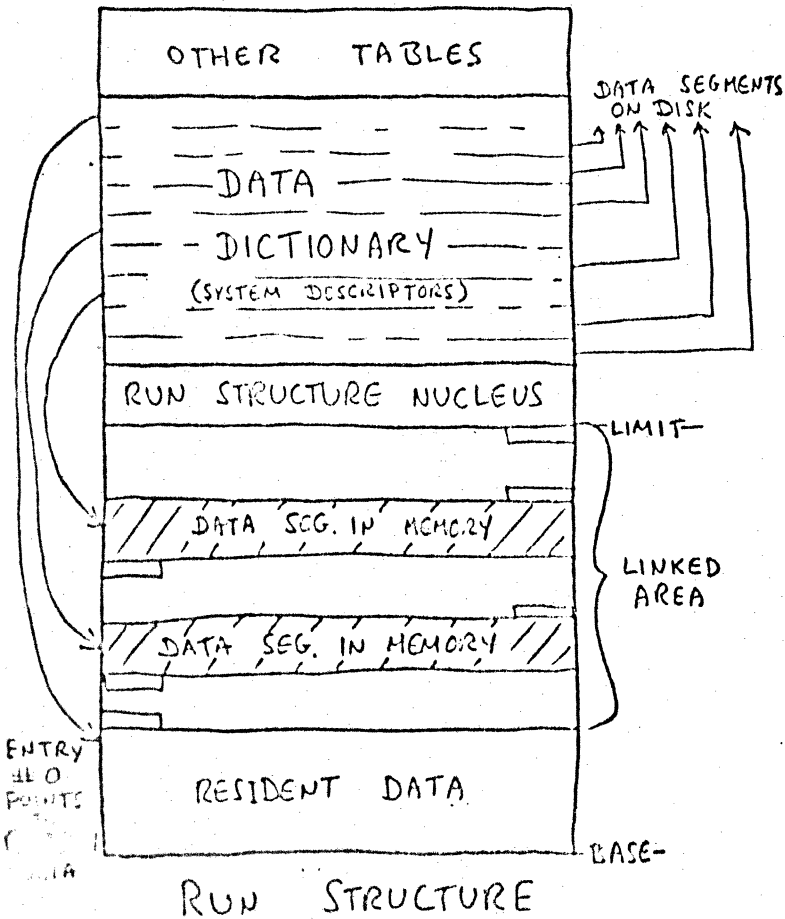 OTHER TABLES
DATA SEGMENTS
ON DISK
DATA
DICTIONARY
(SYSTEM DESCRIPTORS)
RUN STRUCTURE NUCLEUS
LIMIT
DATA SEG. IN MEMORY
LINKED
AREA
DATA SEG. IN MEMORY
ENTRY
#0
POINTS
RESIDENT DATA
BASE
RUN STRUCTURE